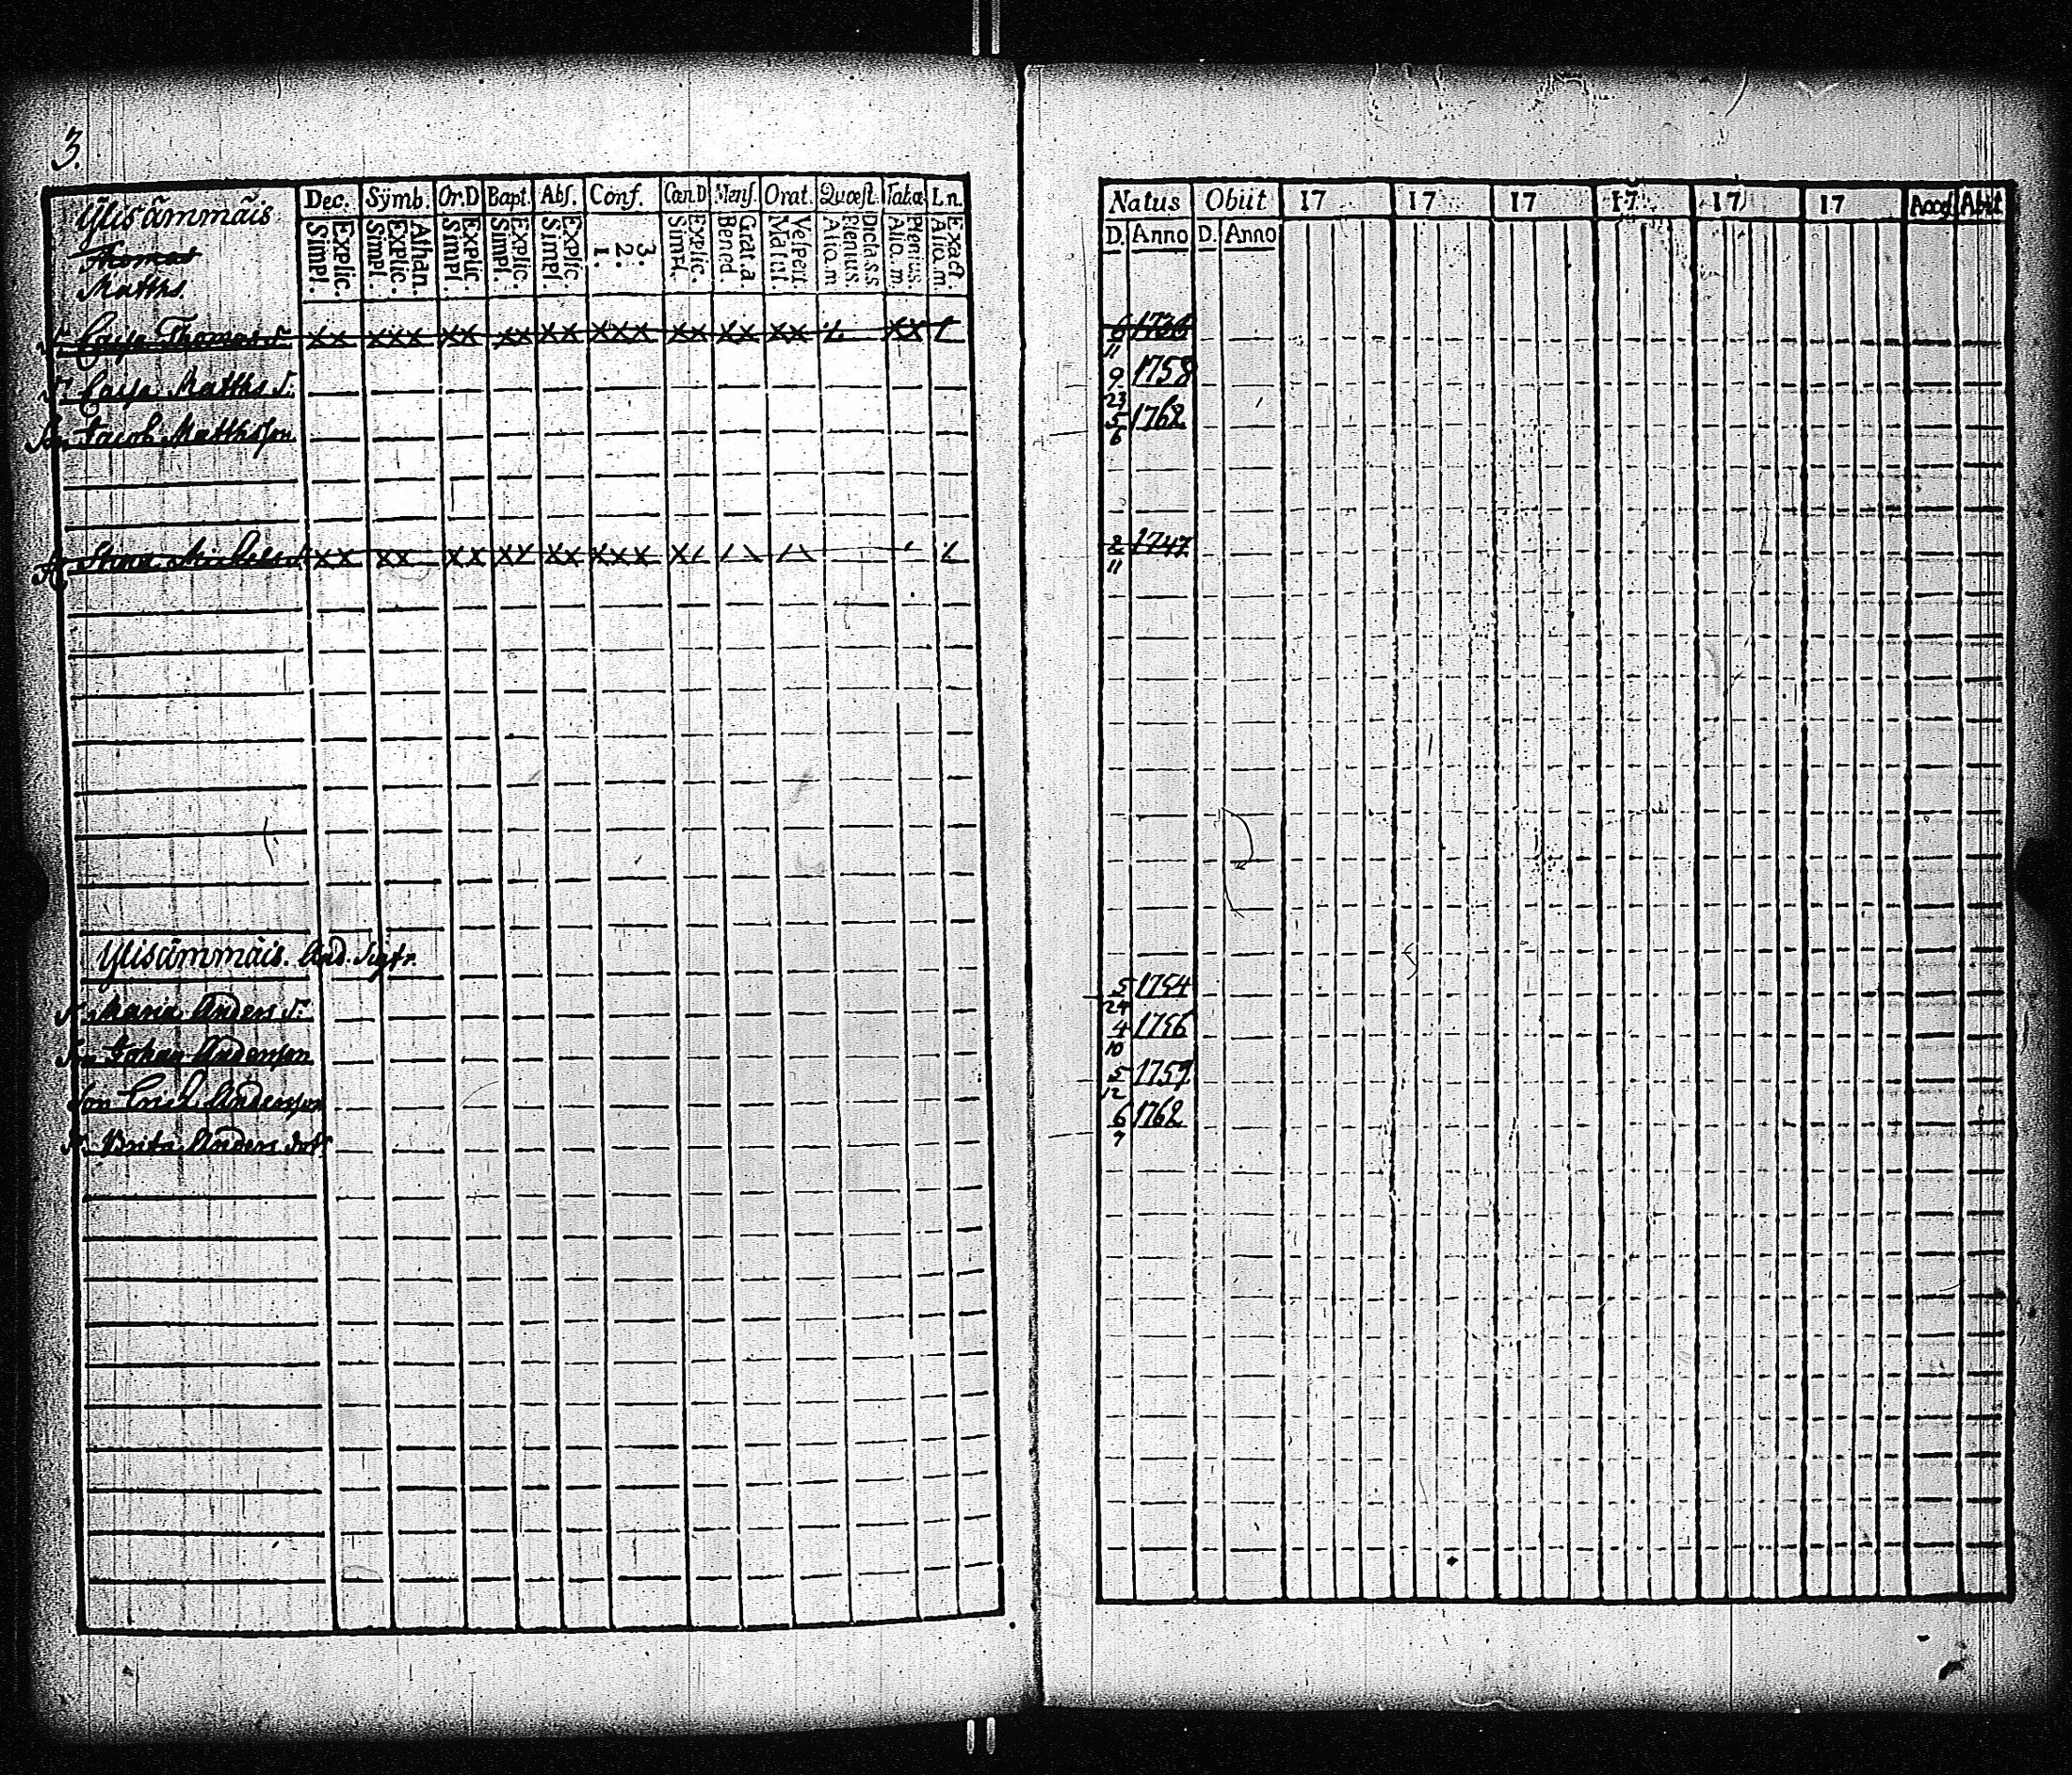 3.
Dec. Symb. Or.D Bapt. Abs. Conf. Cœn.D Mens. Orat. Quæst. Tabæ Ln.
Simpl. Explic. Simpl. Explic. Athan. Simpl. Explic. Simpl. Explic. Simpl. Explic. 1. 2. 3. Simpl. Explic. Bened. Grat.a. Matut. Vesper. Alio.m Plenius. Dicta.s.s Alio.m. Plenius. Alio.m Exact.
Natus Obiit 17 17 17 17 17 17 Acces Abiit
D. Anno D. Anno
Ylisämmäis
Thomas
Matths.
Thomas D. xx xxx xx xx xx xxx xx xx xx xx 6/11 1736
D. Matths D. 9/23 1758
Son Jacob Mathsson 5/6 1762
Stina Michels D xx xx xx xx xx xxx 2/11 1747
Ylisämmäis. And. Sigfr.
D. Maria Anders D. 5/24 1754
Son Johan Anderson 4/10 1756
Son Erich Andersson 5/12 1759
D. Brita Anders dotr 6/7 1762